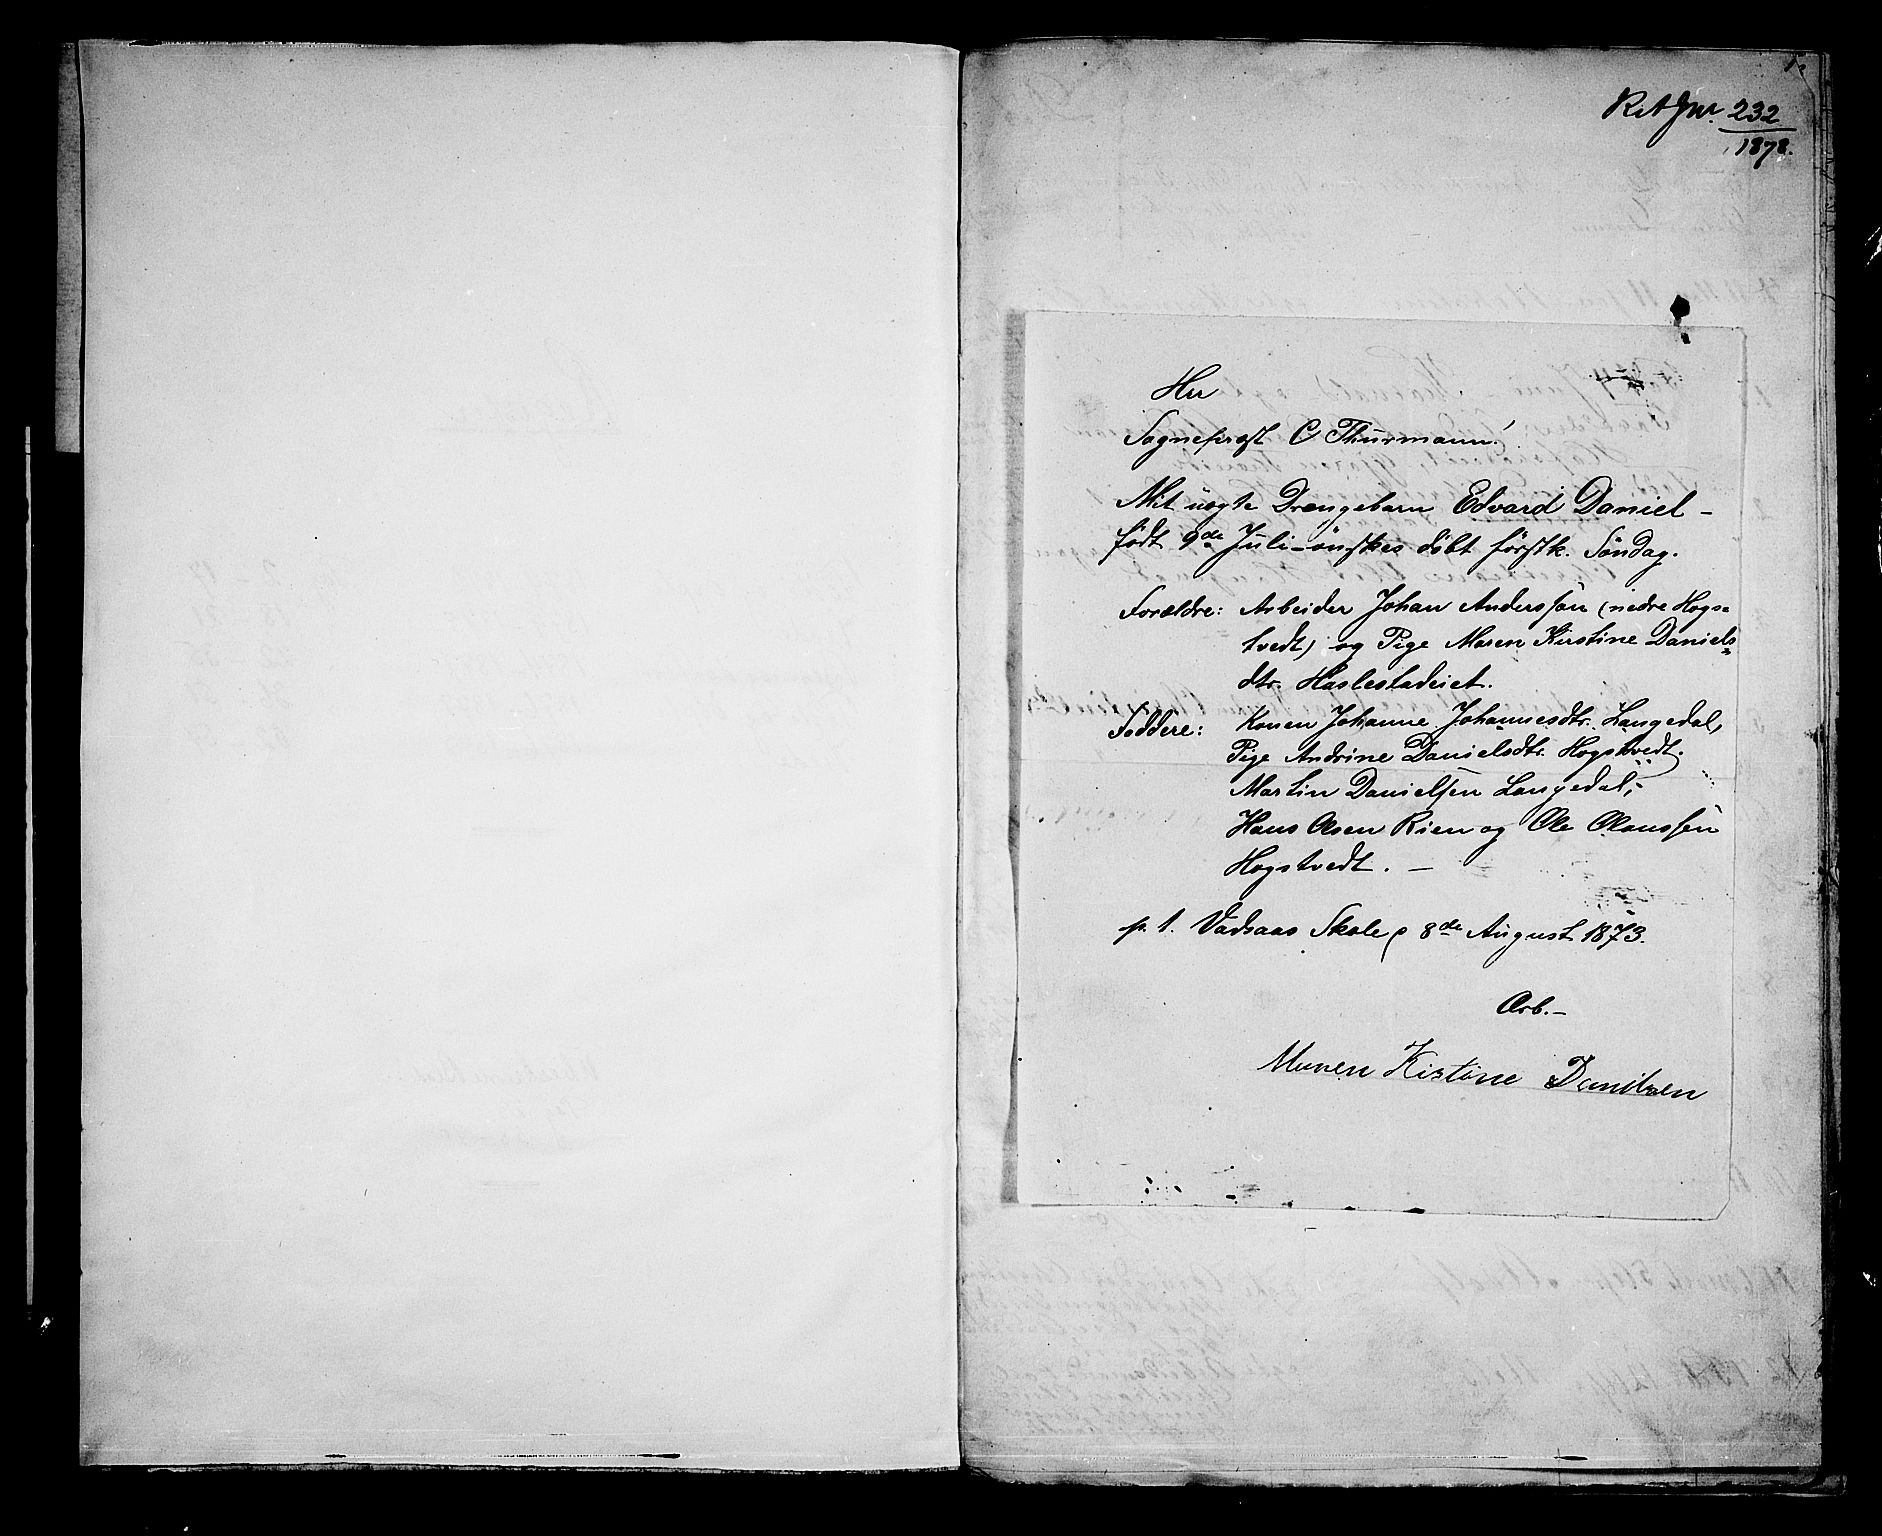 1.
232
1878.
Hr
Sognepræst C Thurmann!
Mit uægte Drængebarn Edvard Daniel -
født 9de Juli - ønskes døbt førstk. Søndag.
Forældre: Arbeider Johan Anderssøn (nedre Hogs=
tvedt) og Pige Maren Kirstine Daniels=
dtr. Haslestadeiet.
Faddere: Konen Johanne Johannesdtr. Langedal,
Pige Andrine Danielsdtr. Hogstvedt.
Martin Danielsen Langedal,
Hans Olsen Rien og Ole Olaussen
Hogstvedt. -
p. t. Vadsaas Skole, 8de August 1873.
Ærb. -
Maren Kistine Danilsen